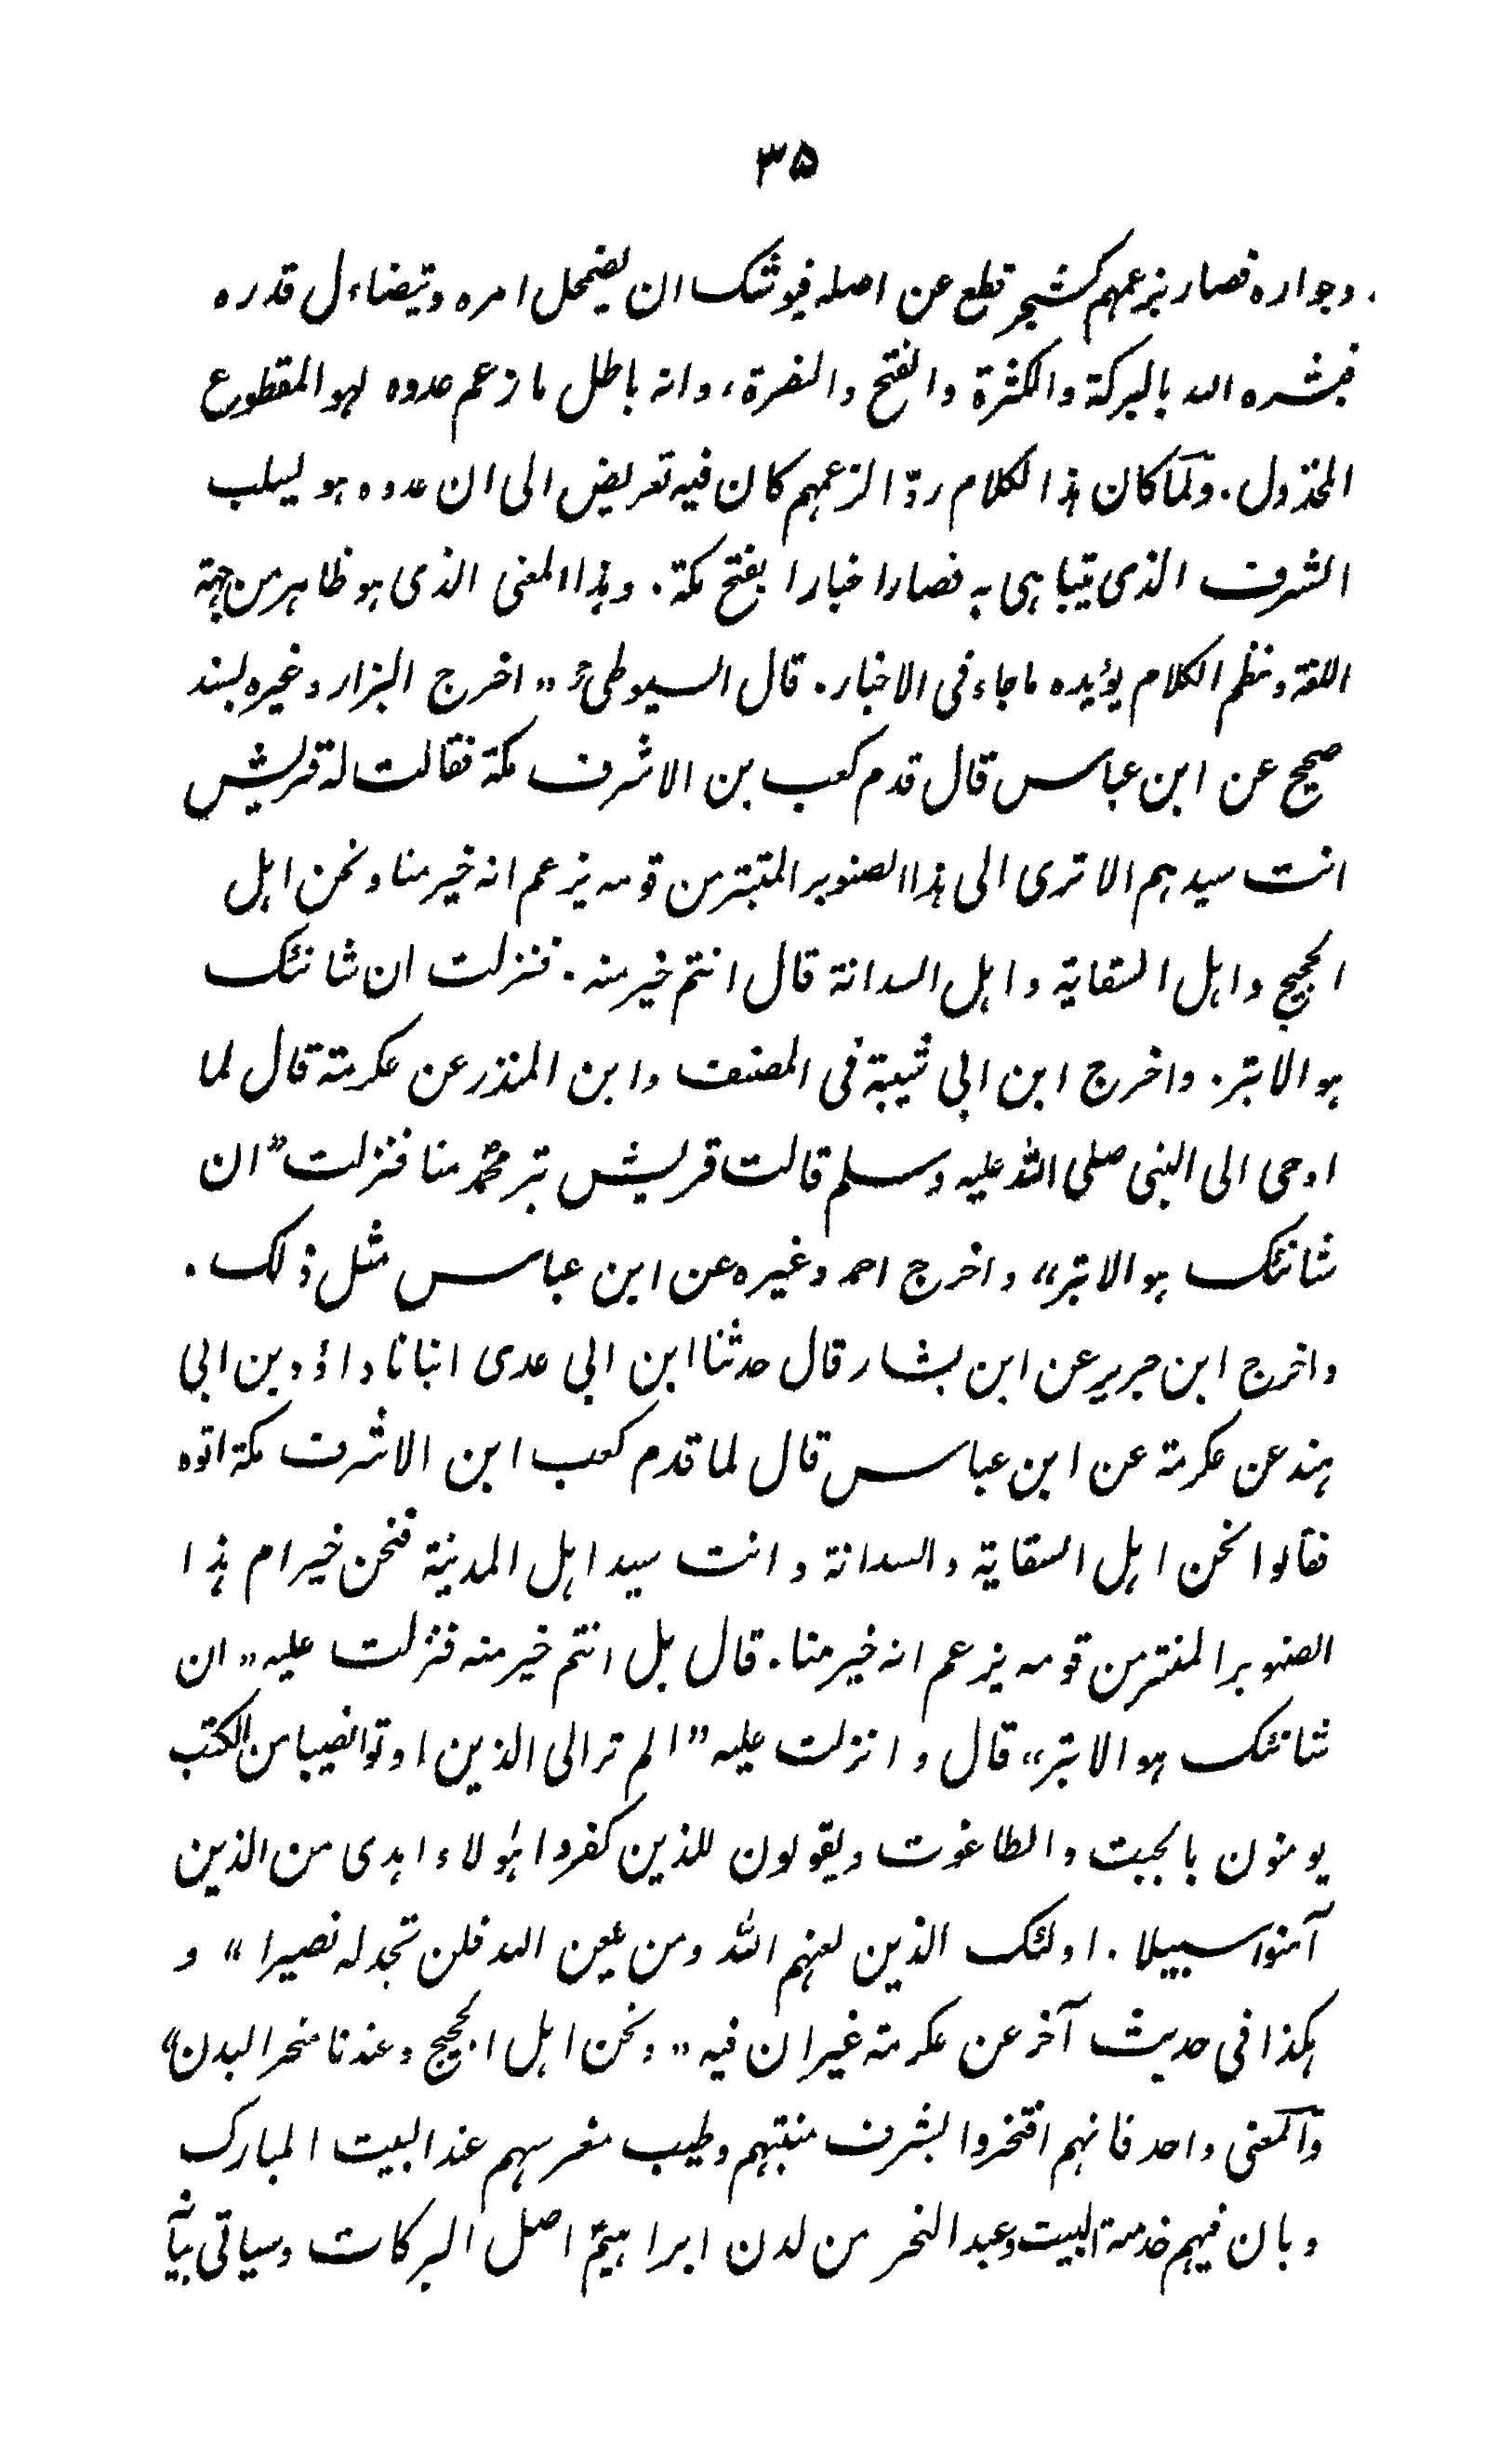 ۳۵
وجواره فصار بزعمهم كشجر قطع عن اصله فيوشك ان يضمحل امره ويتضاءل قدره
فبشره الله بالبركة والكثرة والفتح والنصرة، وانه باطل ما زعم عدوه لهو المقطوع
المخذول. ولما كان هذا الكلام ردّا لزعمهم كان فيه تعريض الى ان عدوه هو ليسلب
الشرف الذى يتباهى به فصار اخبارا بفتح مكة. وهذا المعنى الذى هو ظاهر من جهة
اللغة ونظم الكلام يؤيده ما جاء فى الاخبار. قال السيوطىؒ "اخرج البزار وغيره بسند
صحيح عن ابن عباس قال قدم كعب بن الاشرف مكة فقالت له قريش
انت سيدهم الا ترى الى هذا الصنوبر المتبتر من قومه يزعم انه خير منا ونحن اهل
الحجيج واهل السقاية واهل السدانة قال انتم خير منه. فنزلت ان شانئك
هو الابتر. واخرج ابن ابى شيبة فى المصنف وابن المنذر عن عكرمة قال لما
اوحى الى النبى صلى الله عليه وسلم قالت قريش بتر محمد منا فنزلت "ان
شانئك هو الابتر" واخرج احمد وغيره عن ابن عباس مثل ذلك.
واخرج ابن جرير عن ابن بشار قال حدثنا ابن ابى عدى انبانا داؤد بن ابى
هند عن عكرمة عن ابن عباس قال لما قدم كعب ابن الاشرف مكة اتوه
فقالوا نحن اهل السقاية والسدانة وانت سيد اهل المدينة فنحن خير ام هذا
الصنوبر المنبتر من قومه يزعم انه خير منا. قال بل انتم خير منه فنزلت عليه "ان
شانئك هو الابتر" قال وانزلت عليه "الم تر الى الذين اوتوا نصيبا من الكتب
يومنون بالجبت والطاغوت ويقولون للذين كفروا هٰولاء اهدى من الذين
آمنوا سبيلا. اولئك الذين لعنهم الله ومن يلعن الله فلن تجد له نصيرا" و
هكذا فى حديث آخر عن عكرمة غير ان فيه "ونحن اهل الحجيج وعندنا منحر البدن"
والمعنى واحد فانهم افتخروا بشرف منبتهم وطيب مغرسهم عند البيت المبارك
وبان فيهم خدمة البيت وعبد النحر من لدن ابراهيمؑ اصل البركات وسياتى بيانه